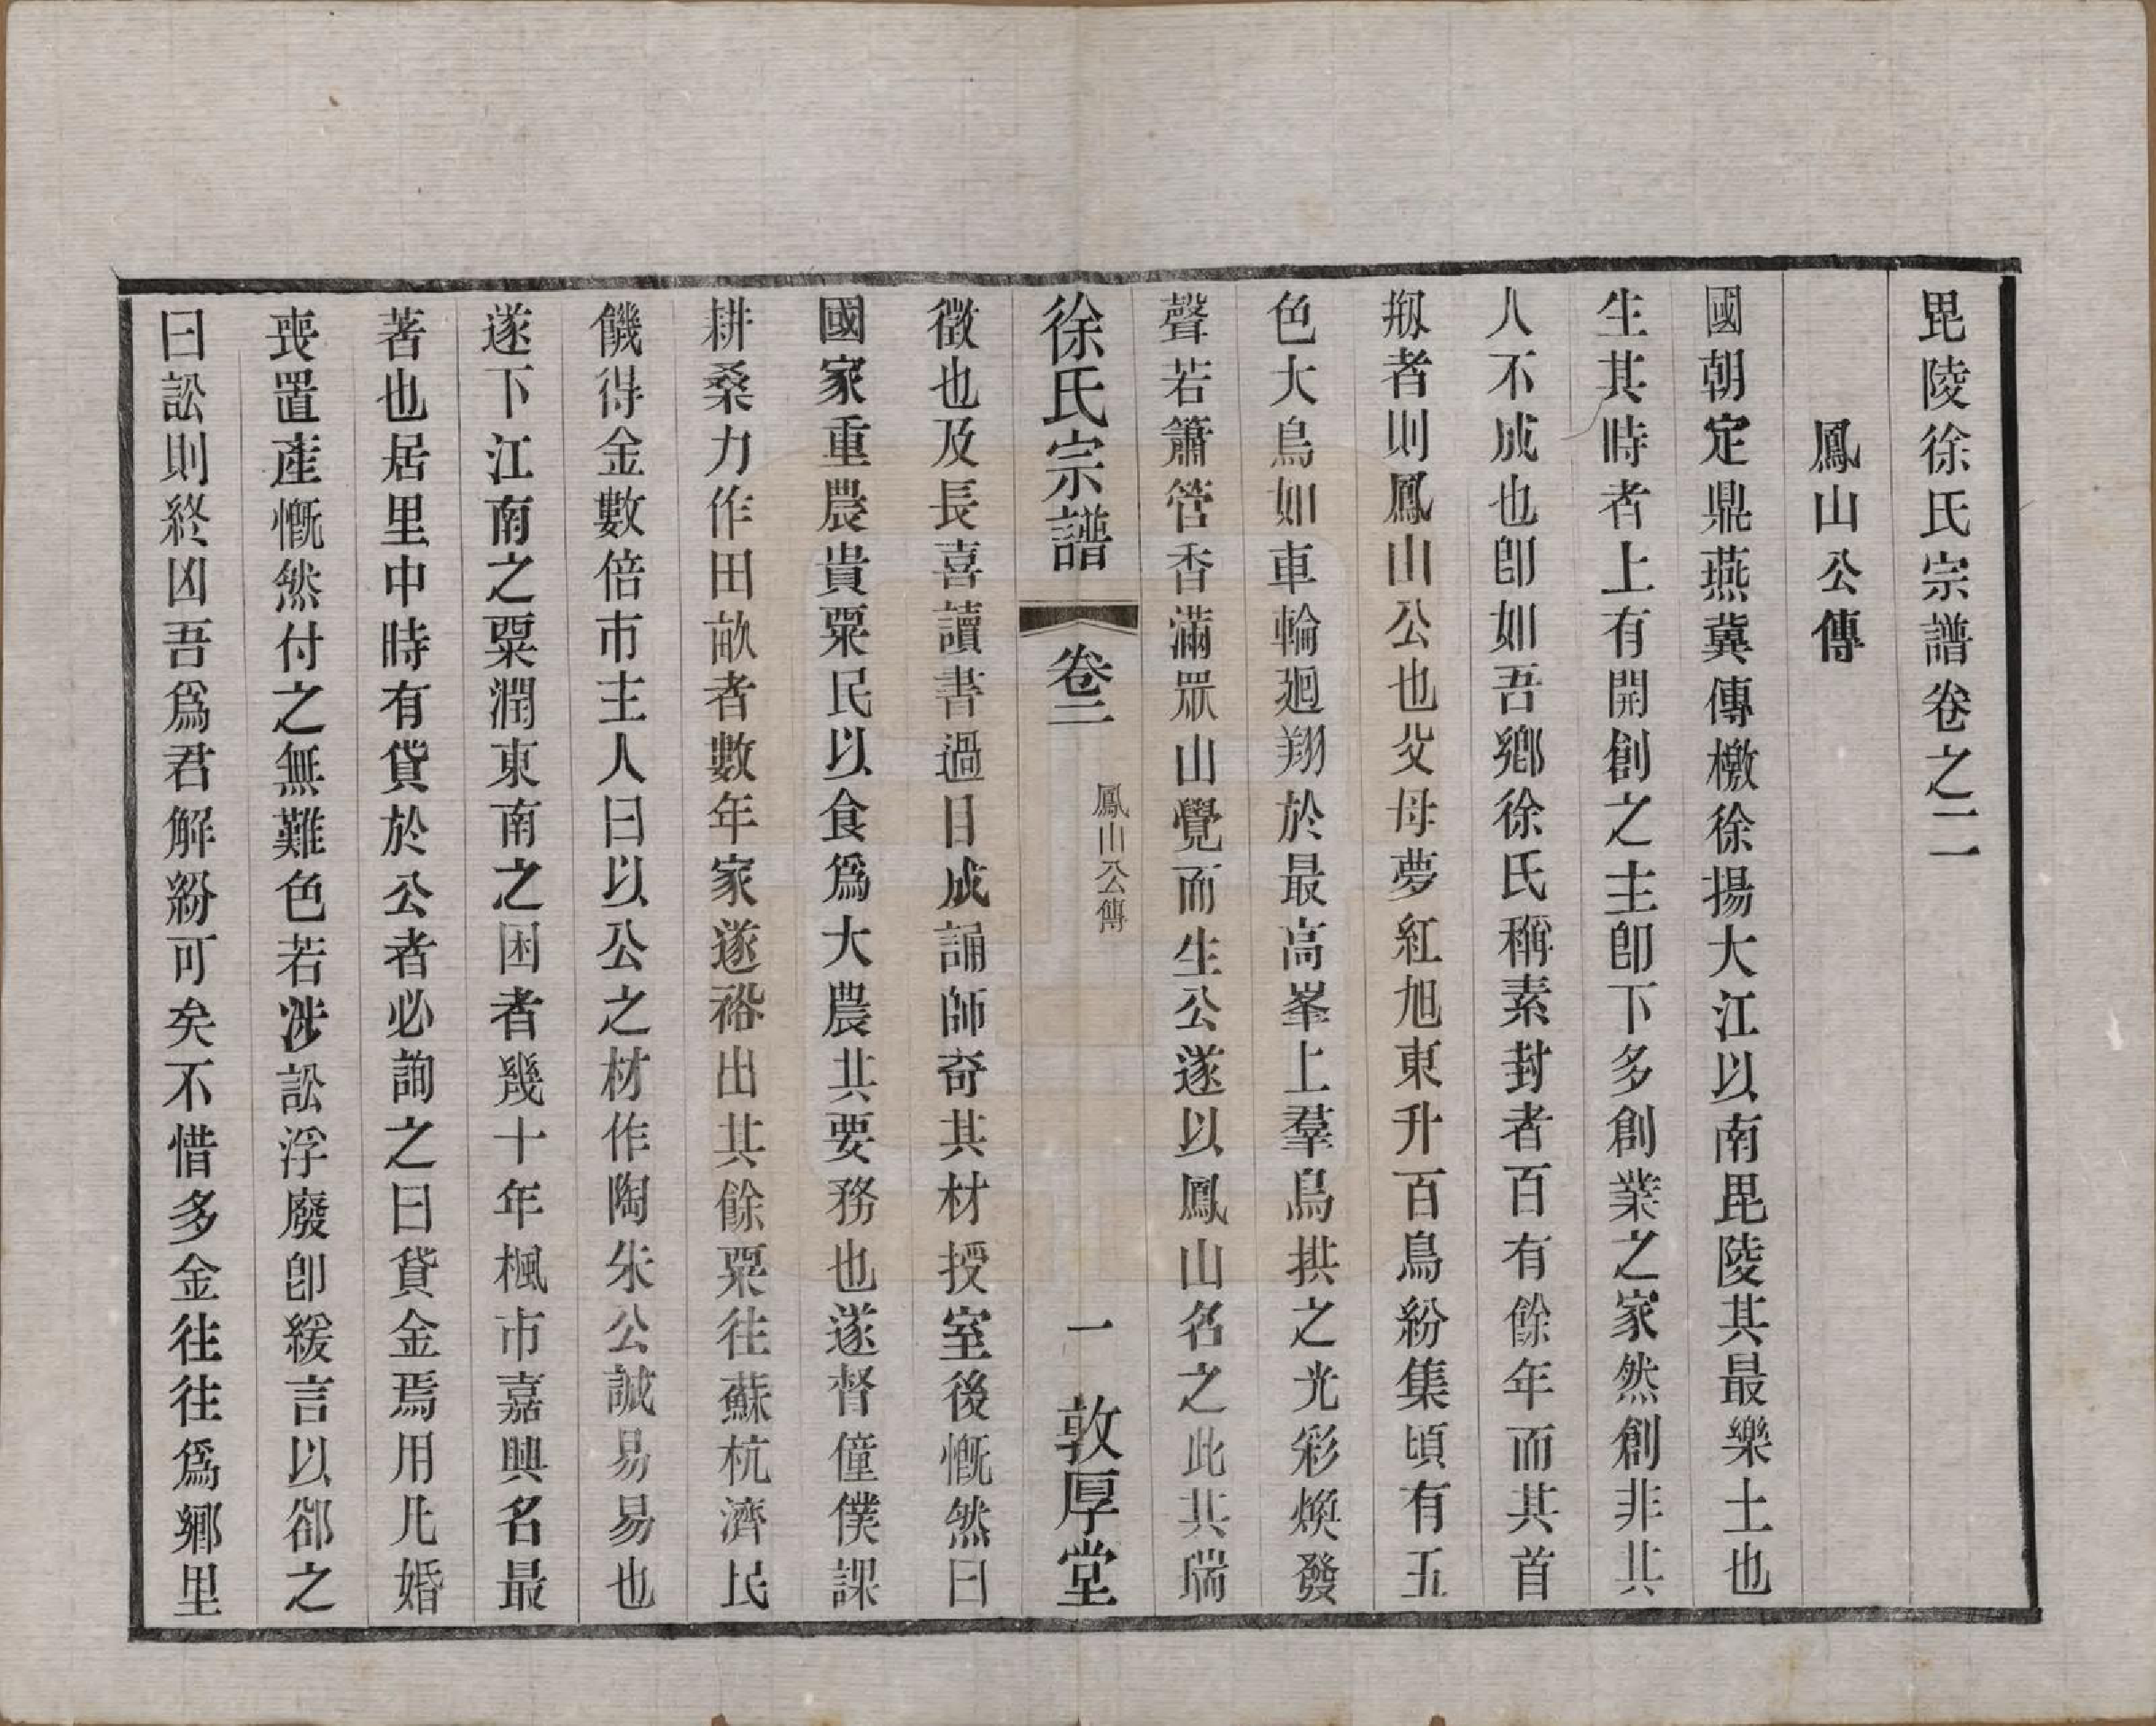 毘陵徐氏宗譜卷之二
鳳山公傳
國朝定鼎燕冀傳檄徐揚大江以南毘陵其最樂土也
生其時者上有開創之主卽下多創業之家然創非其
人不成也卽如吾鄕徐氏稱素封者百有餘年而其首
剏者則鳳山公也父母夢紅旭東升百鳥紛集頃有五
色大鳥如車輪廻翔於最高峯上羣鳥拱之光彩煥發
聲若簫管香滿眾山覺而生公遂以鳳山名之此其瑞
徐氏宗譜
卷二
鳳山公傳
一
敦厚堂
徵也及長喜讀書過目成誦師奇其材授室後慨然曰
國家重農貴粟民以食爲大農其要務也遂督僮僕課
耕桑力作田畝者數年家遂裕出其餘粟往蘇杭濟民
饑得金數倍市主人曰以公之材作陶朱公誠易易也
遂下江南之粟潤東南之困者幾十年楓市嘉興名最
著也居里中時有貸於公者必詢之曰貸金焉用凡婚
喪置產慨然付之無難色若涉訟浮廢卽緩言以郤之
曰訟則終凶吾爲君解紛可矣不惜多金往往爲鄕里